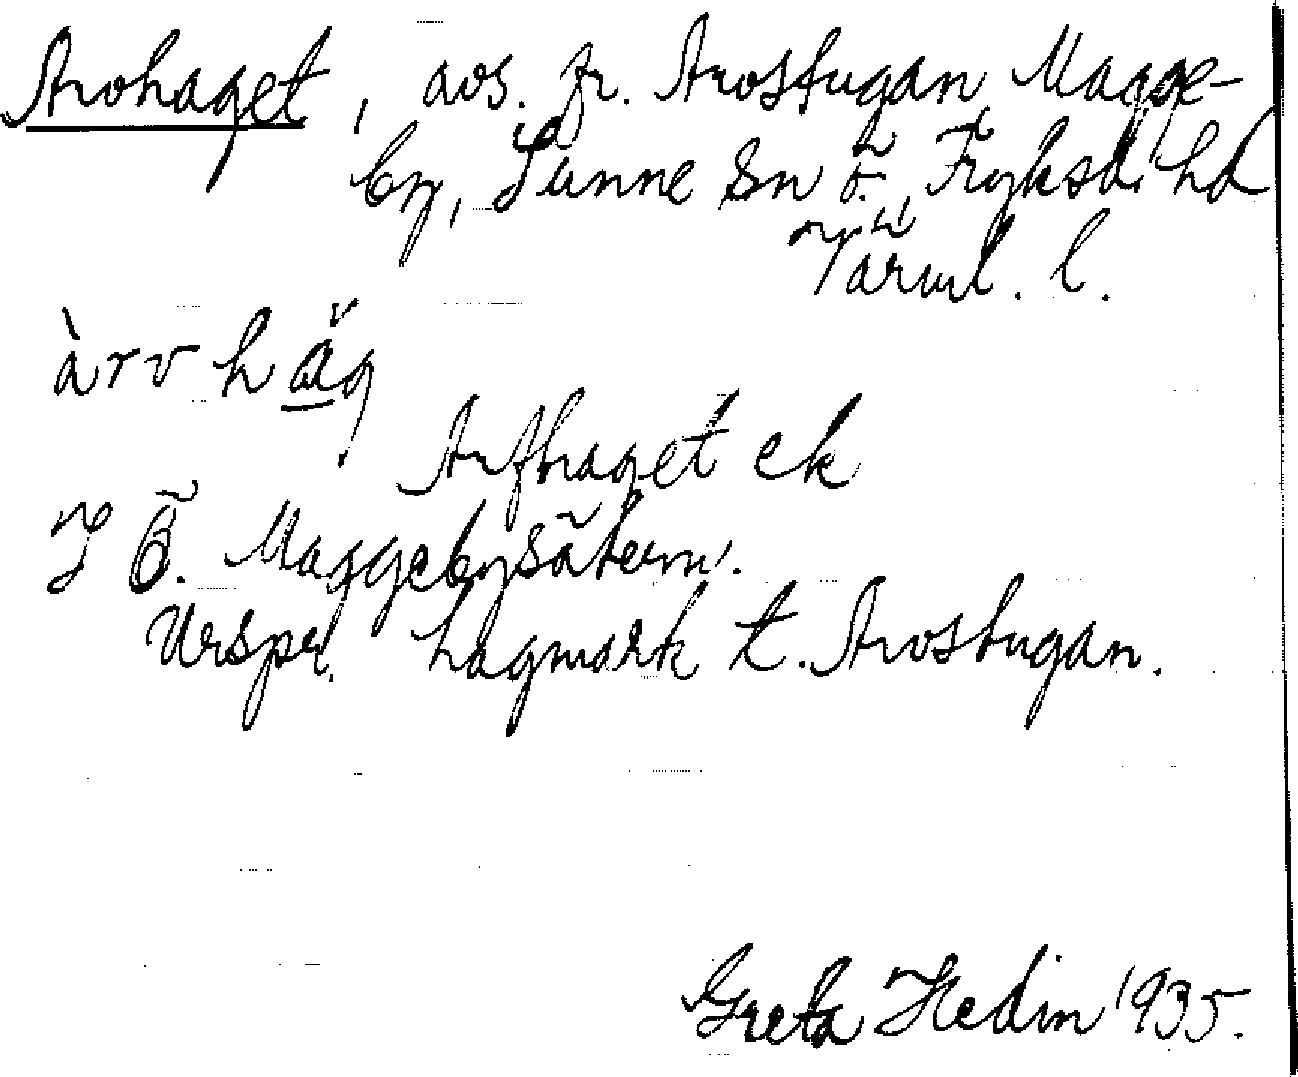 Arvhaget, avs. fr. Arvstugan Magge-
by, Sunne Sn Ö. Fryksd. hd
Värml. l.
àrv hag
Arfhaget ek
I Ö. Maggebysätern.
Urspr. hagmark t. Arvstugan.
Greta Hedin 1935.